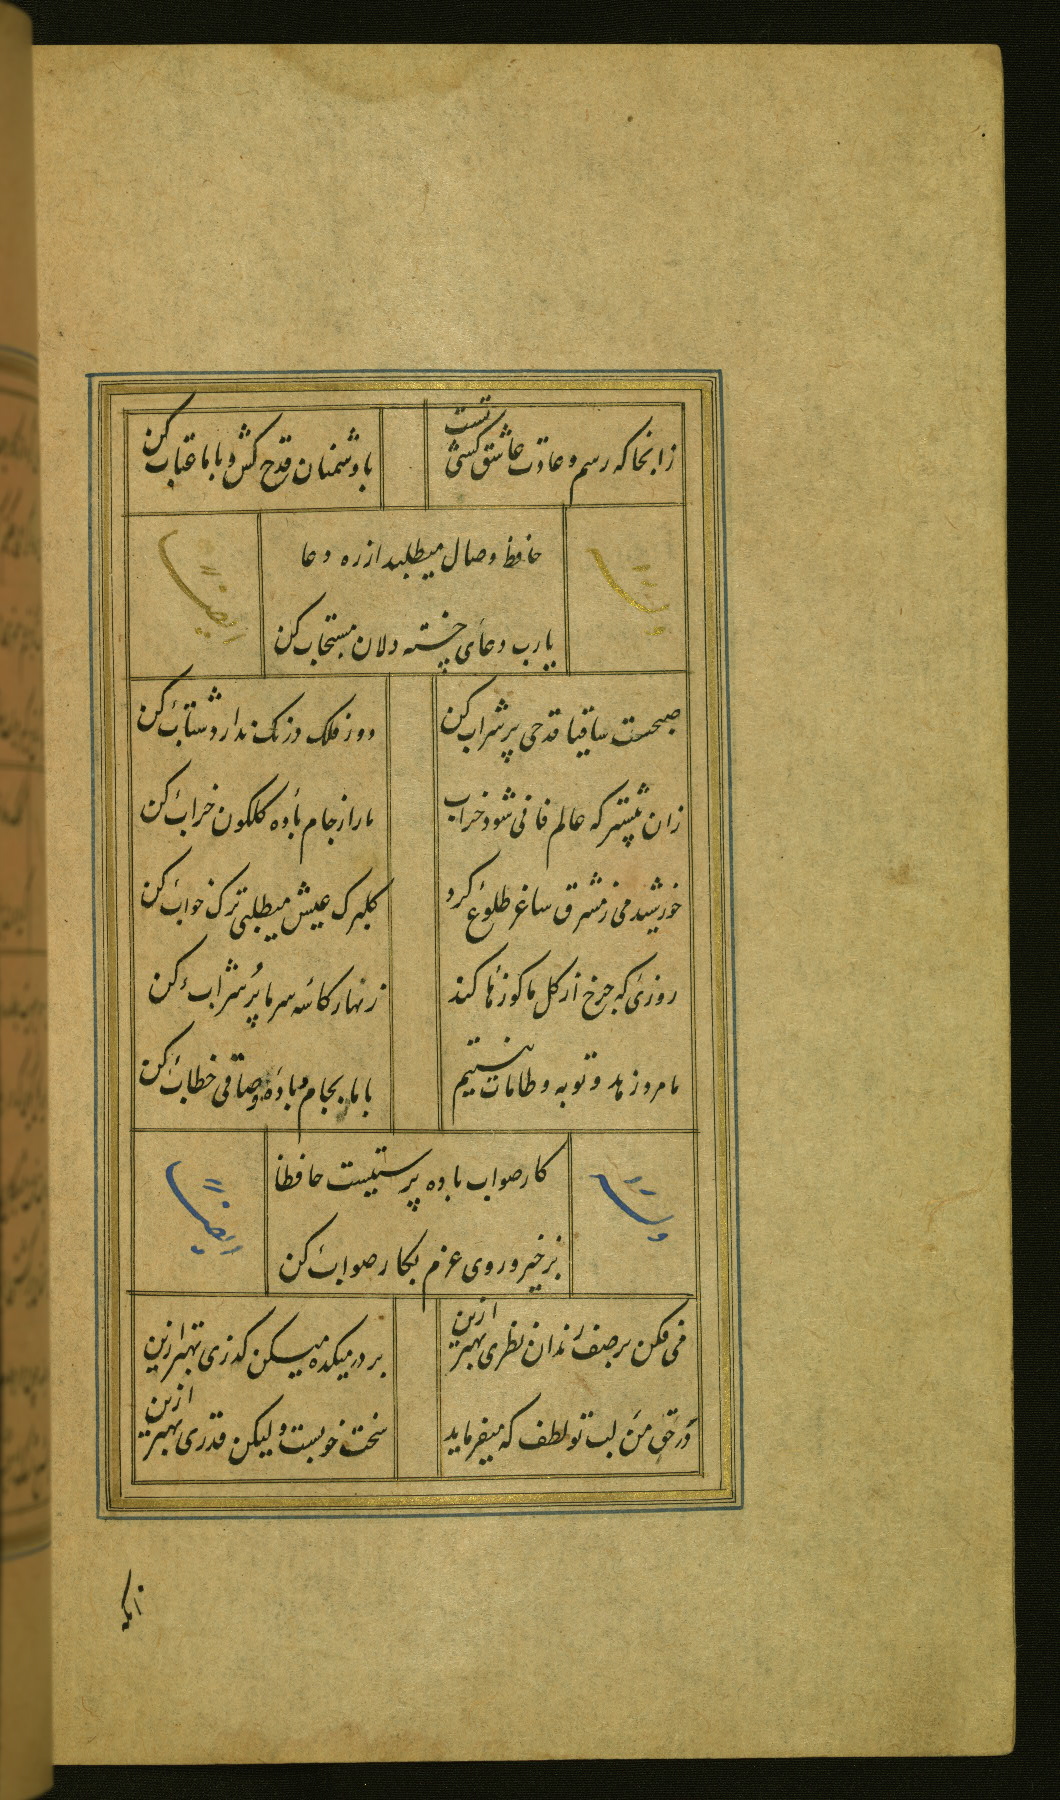 زانجا که رسم و عادت عاشق کشی تست
با دشمنان قدح کش و با ما عتاب کن
حافظ وصال میطلبد از ره دعا
یارب دعای خسته دلان مستجاب کن
وله
ایضا
صبحست ساقیا قدحی پر شراب کن
دور فلک درنک ندارد شتاب کن
زان پیشتر که عالم فانی شود خراب
ما را ز جام باده کلکون خراب کن
خورشید می ز مشرق ساغر طلوع کرد
کر برک عیش میطلبی ترک خواب کن
روزی که چرخ از کل ما کوزها کند
زنهار کاسه سر ما پر شراب کن
ما مرد زهد و توبه و طامات نیستیم
با ما بجام باده صافی خطاب کن
کار صواب باده پرستیست حافظا
برخیز و روی عزم بکار صواب کن
وله
ایضا
می فکن بر صف رندان نظری بهتر ازین
بر در میکده میکن کذری بهتر ازین
در حق من لبت تو لطف که میفرماید
سخت خوبست ولیکن قدری بهتر ازین
انکه